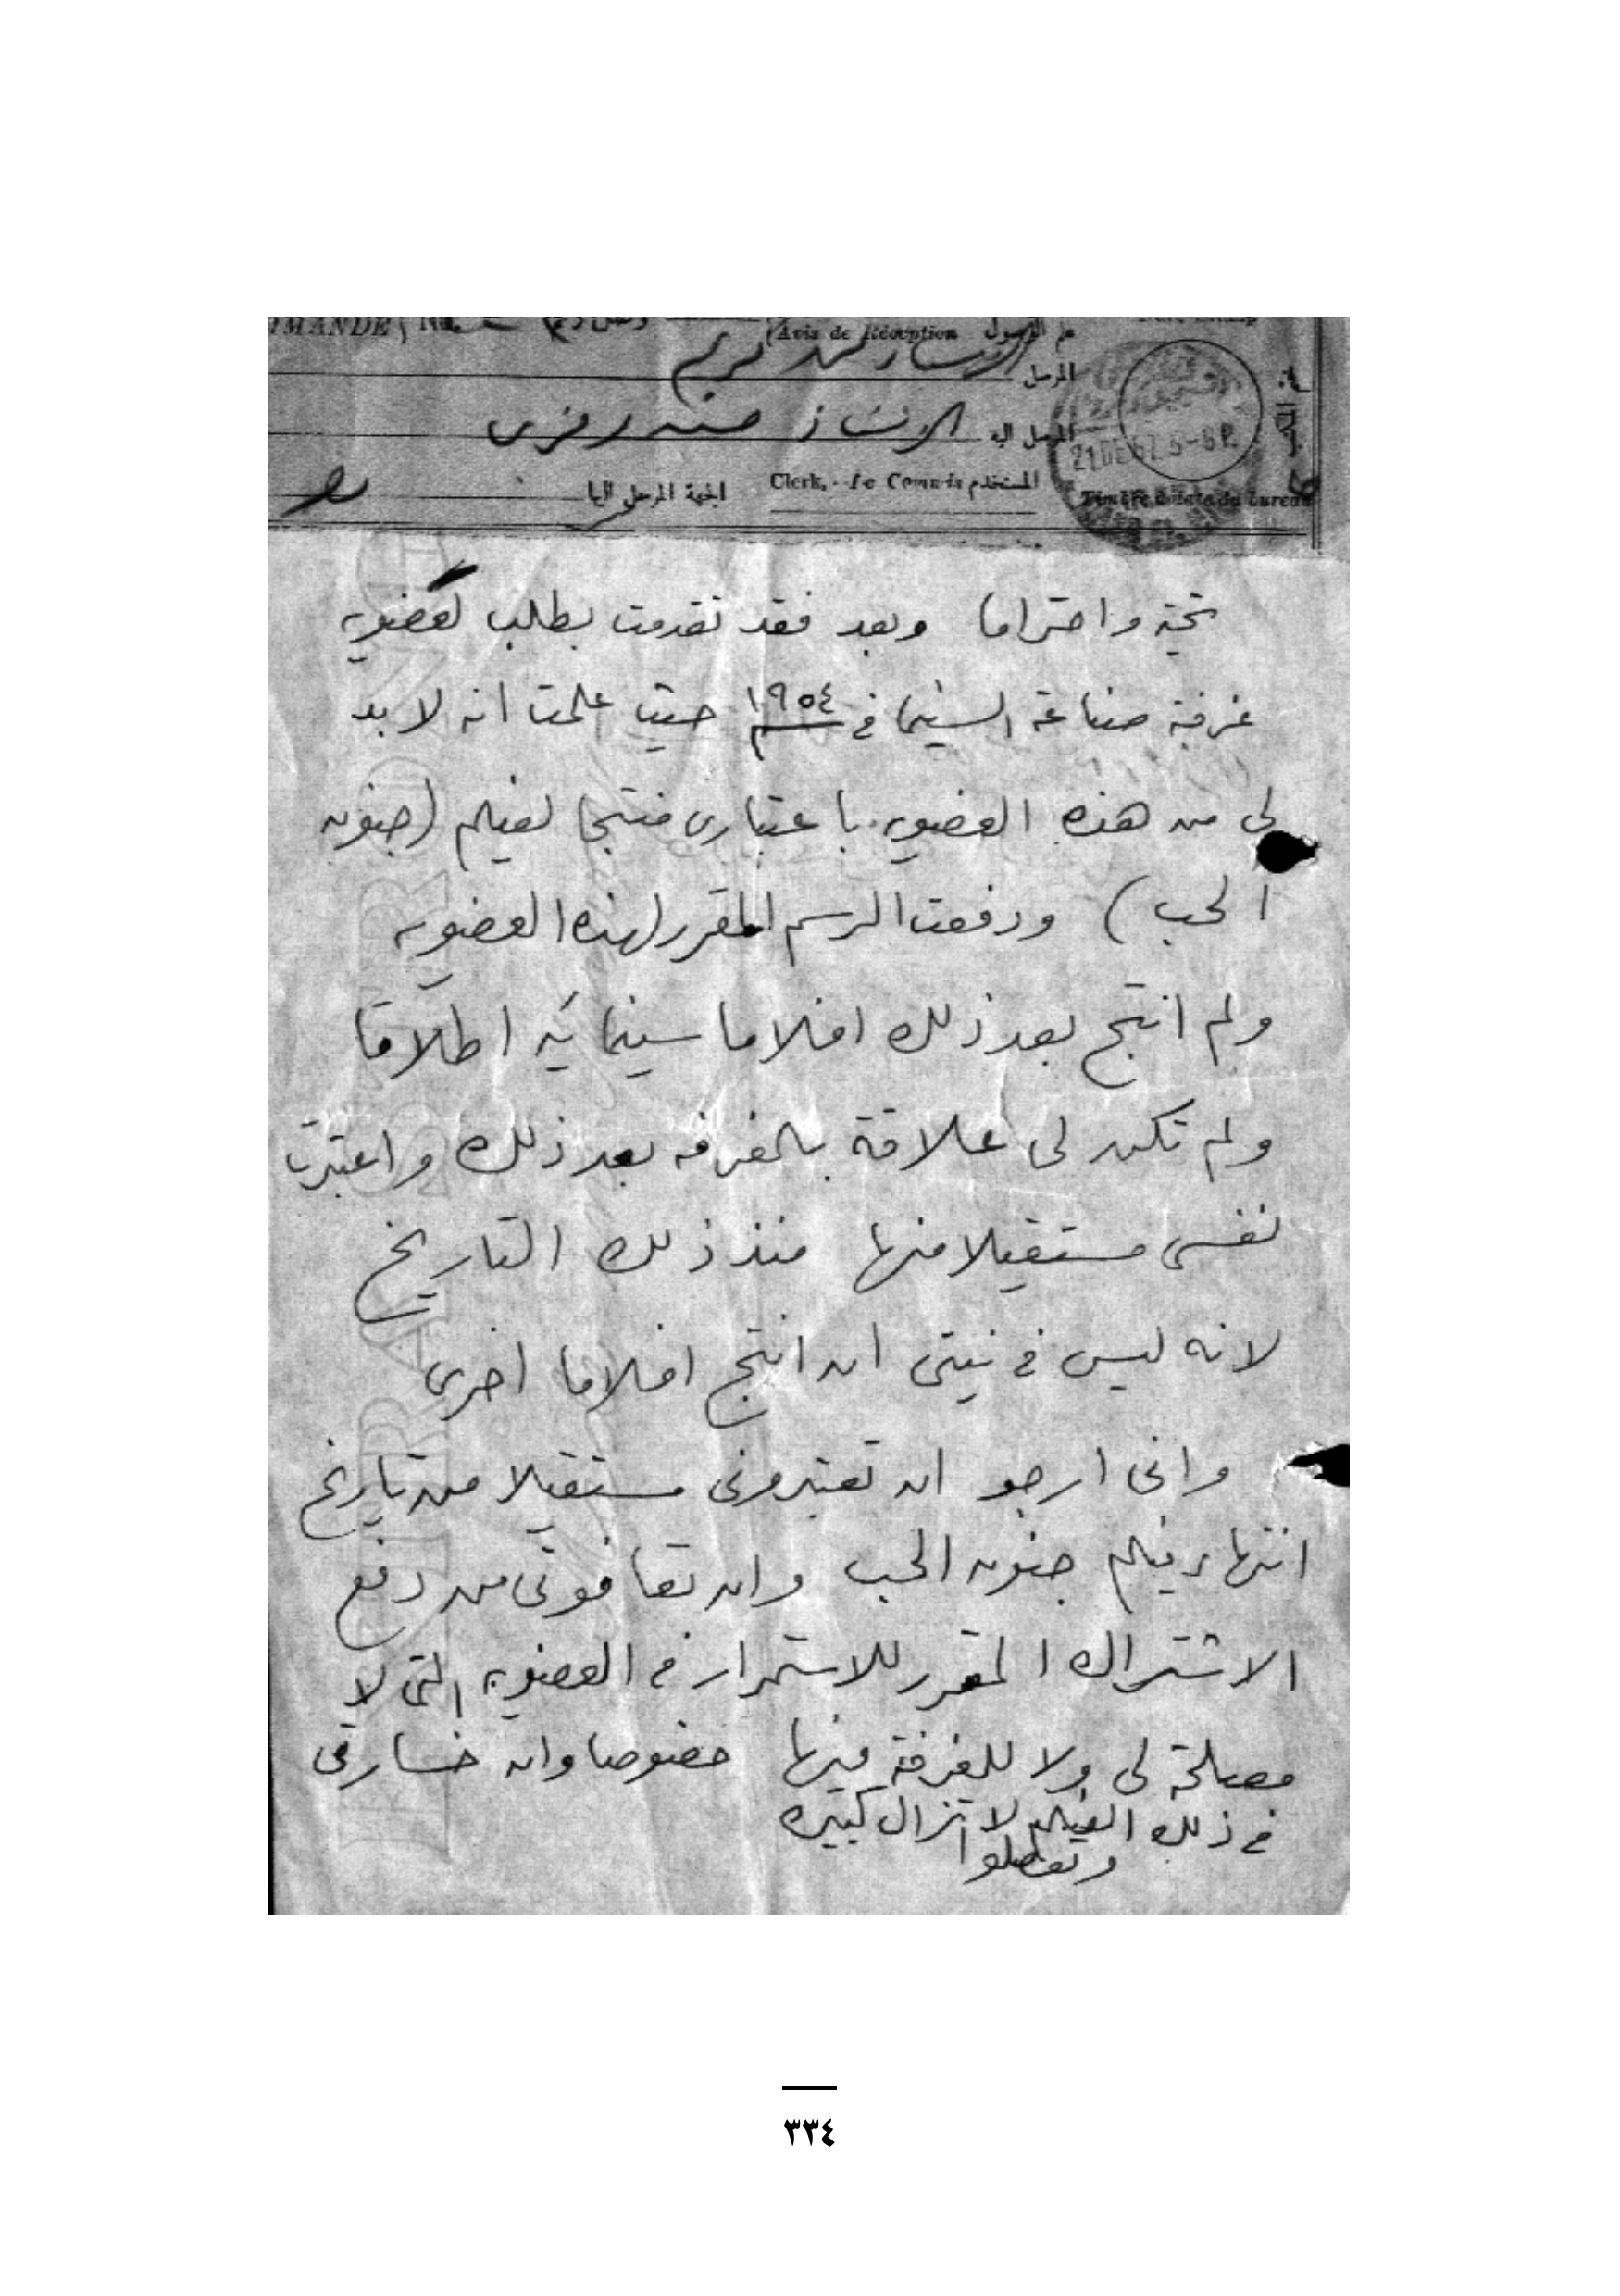 (Avis de Réception علم الوصول
المرسل الاستاذ محمد كريم
المرسل اليه الاستاذ حسن رمزى
Clerk, - Le Commis المستخدم الجهة المرسل اليها
21 DE 57. 5-6 P.
Timbre à date du bureau
تحية واحتراما وبعد فقد تقدمت بطلب لعضوية
غرفة صناعة السينما فى ١٩٥٤ حيث علمت انه لا بد
لى من هذه العضوية باعتبارى منتجا لفيلم (جنون
الحب) ودفعت الرسم المقرر لهذه العضوية
ولم انتج بعد ذلك افلاما سينمائية اطلاقا
ولم تكن لى علاقة بالغرفه بعد ذلك واعتبرت
نفسى مستقيلا منها منذ ذلك التاريخ
لانه ليس فى نيتى ان انتج افلاما اخرى
وانى ارجو ان تعتبرونى مستقيلا من تاريخ
انتهاء فيلم جنون الحب وان تعافونى من دفع
الاشتراك المقرر للاستمرار فى العضوية التى لا
مصلحة لى ولا للغرفة فيها خصوصا وان خسارتى
فى ذلك الفيلم لا تزال كبيره
وتفضلوا
٣٣٤